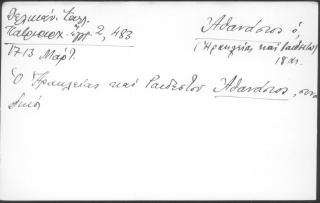 Δελικάν. Καλλ.
Πατριαρχ. ἔγγρ. 2, 483
1713 Μάρτ.
Ἀθανάσιος ὁ,
(Ἡρακλείας καὶ Ραιδεστοῦ)
18 αἰ.
Ὁ Ἡρακλείας καὶ Ραιδεστοῦ Ἀθανάσιος, συνο
δικό